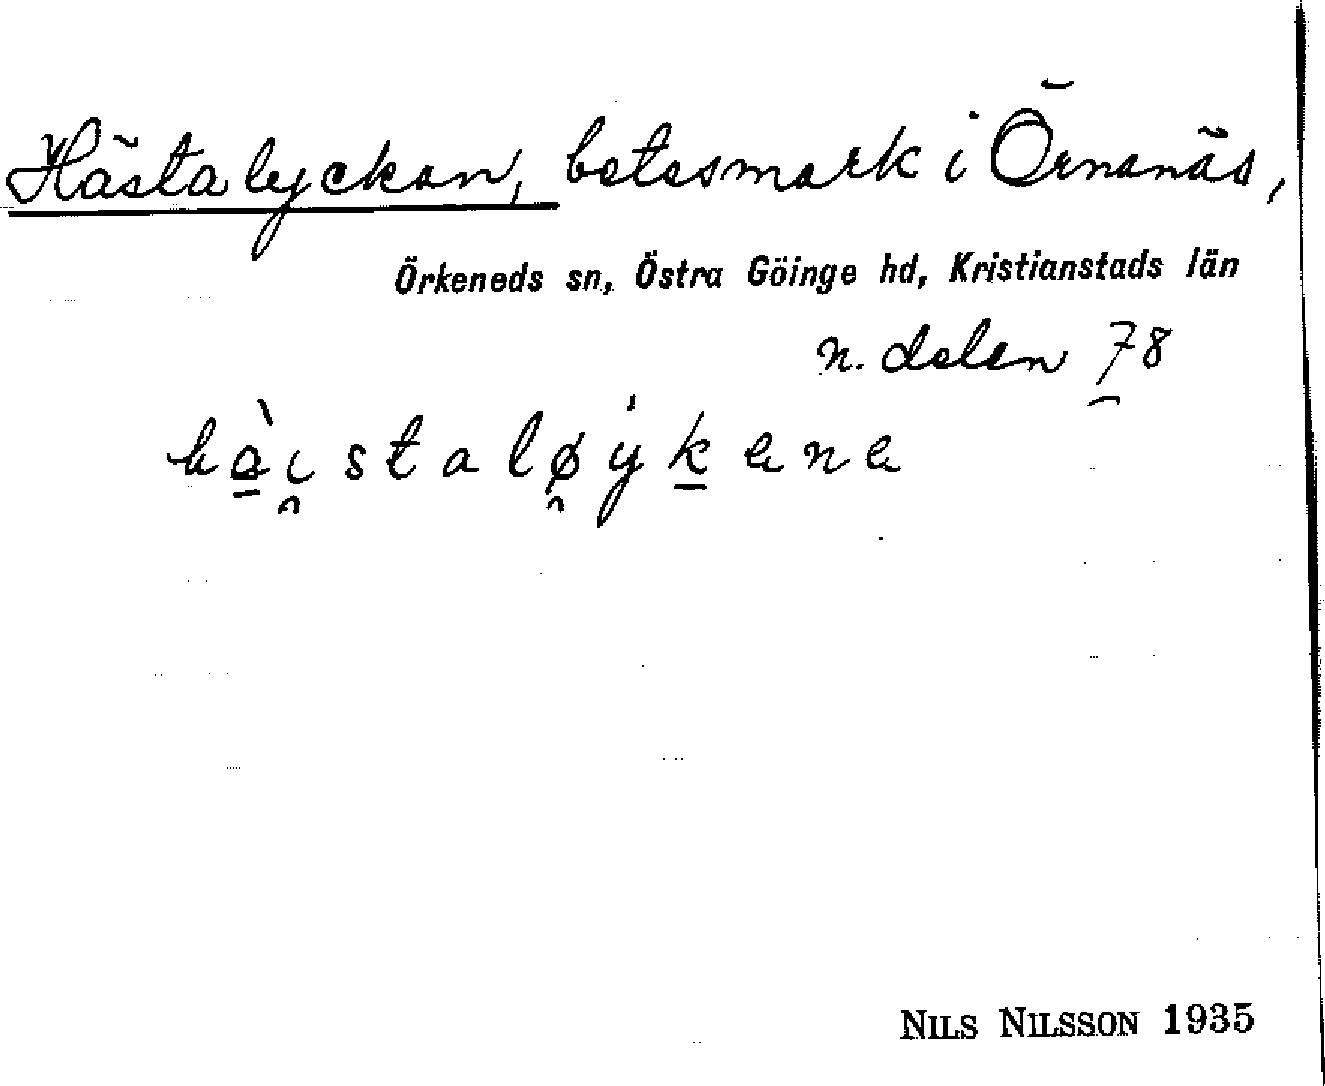 Hästalyckan, betesmark i Örnanäs,
Örkeneds sn, Östra Göinge hd, Kristianstads län
n. delen 78
NILS NILSSON 1935